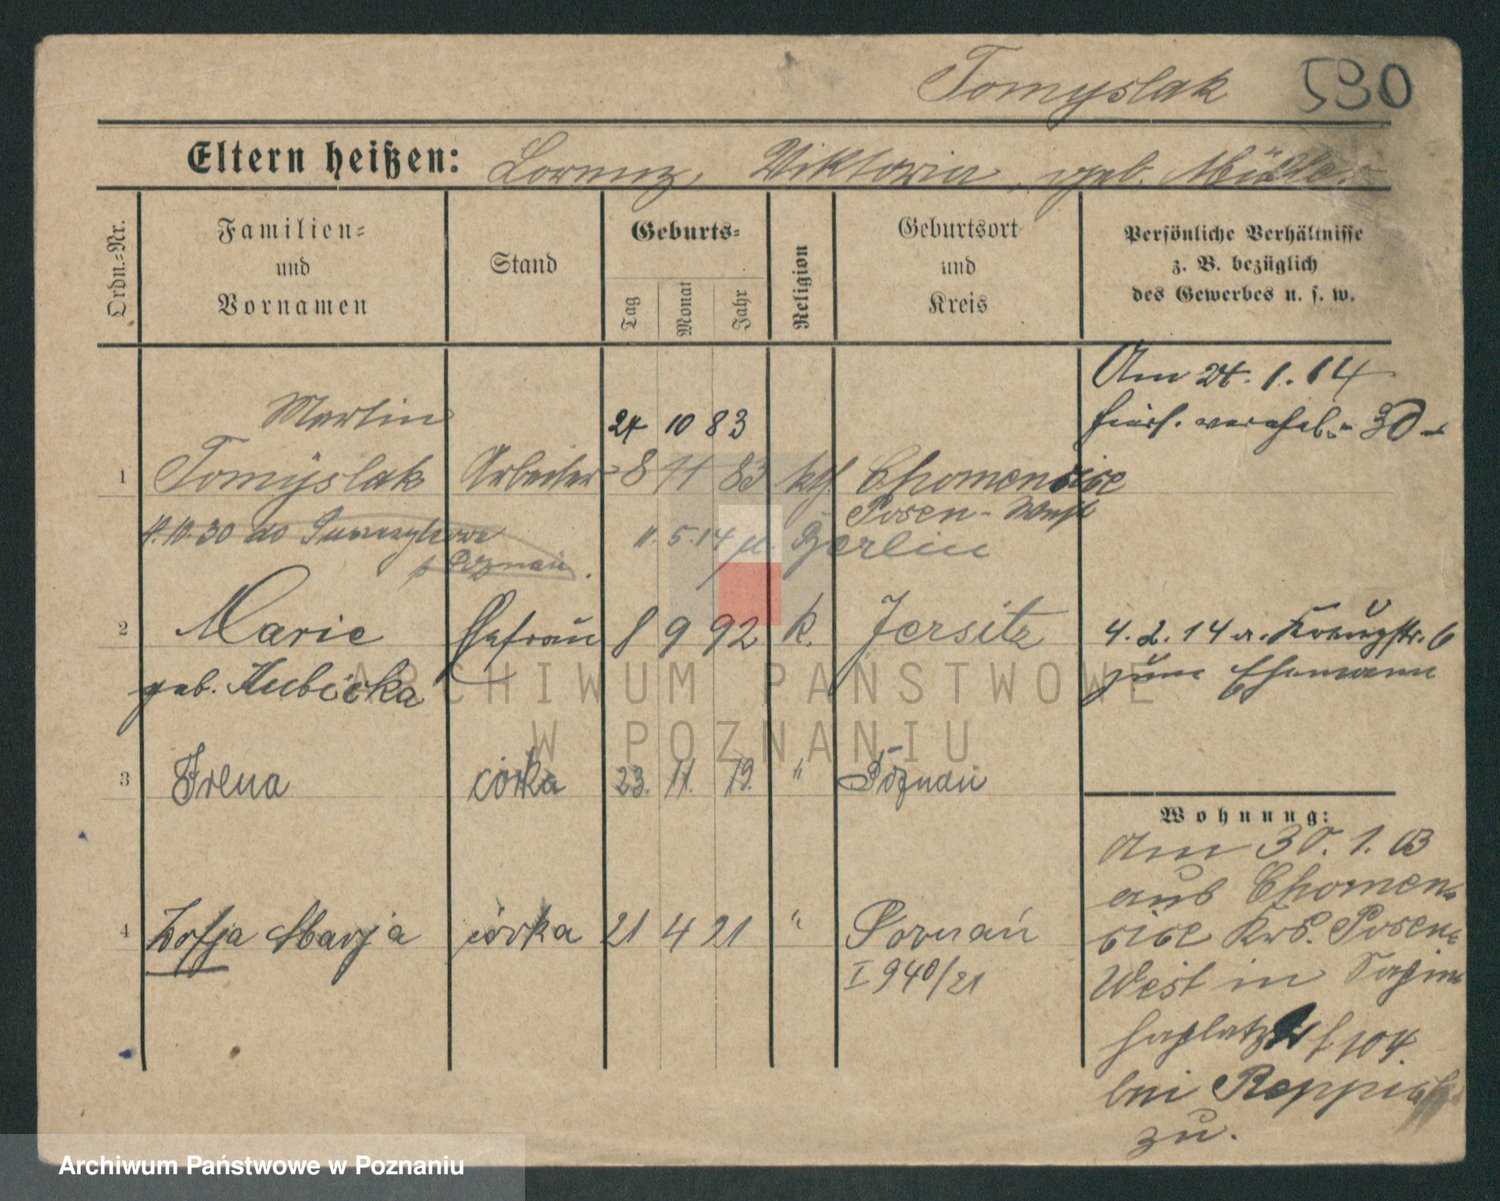 Tomyslak 590
Eltern heißen: Lorenz, Viktoria, geb. Müller
Ordn.-Nr.
Familien- und Vornamen
Stand
Geburts-
Tag
Monat
Jahr
Religion
Geburtsort und Kreis
Persönliche Verhältnisse
z. B. bezüglich
des Gewerbes u. s. w.
Am 24. 1. 14
30
Martin
24 10 83
1 Tomyslak Arbeiter 8 11 83 kth. Chomencice
Posen-West
4.10.30 do
p. Poznań
11.5.14 Berlin
2 Marie Ehefrau 8 9 92 k. Jersitz
geb. Kubicka
4. 2. 14 6
zum Ehemann
3 Irena córka 23. 11. 19. " Poznań
4 Zofja Marja córka 21 4 21 " Poznań
I 940/21
Wohnung:
Am 30. 1. 03
aus Chomen-
cice Krs. Posen-
West in
104
bei
zu.
ARCHIWUM PAŃSTWOWE
W POZNANIU
Archiwum Państwowe w Poznaniu